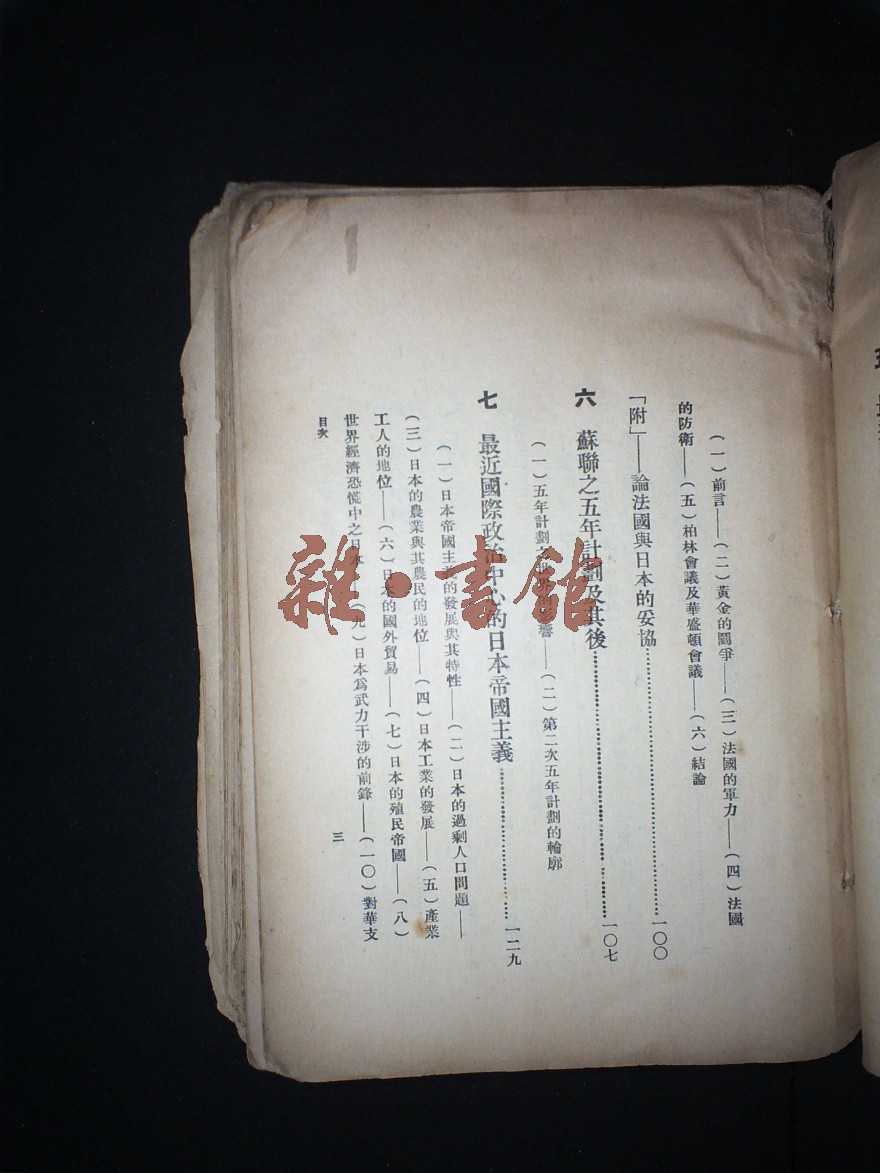 (一)前言——(二)黃金的鬭爭——(三)法國的軍力——(四)法國
的防衛——(五)柏林會議及華盛頓會議——(六)結論
「附」——論法國與日本的妥協……一〇〇
六 蘇聯之五年計劃及其後……一〇七
(一)五年計劃之世界的影響——(二)第二次五年計劃的輪廓
七 最近國際政治中心的日本帝國主義……一二九
(一)日本帝國主義的發展與其特性——(二)日本的過剩人口問題——
(三)日本的農業與其農民的地位——(四)日本工業的發展——(五)產業
工人的地位——(六)日本的國外貿易——(七)日本的殖民帝國——(八)
世界經濟恐慌中之日本——(九)日本爲武力干涉的前鋒——(一〇)對華支
目次
三
雜·書館